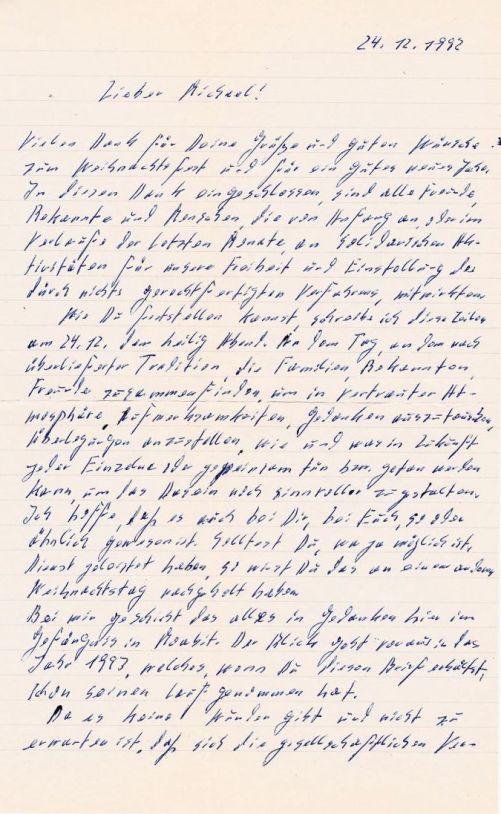 24. 12. 1992
Lieber Michael!
Vielen Dank für Deine Grüße und guten Wünsche
zum Weihnachtsfest und für ein gutes neues Jahr.
In diesen Dank eingeschlossen, sind alle Freunde,
Bekannte und Menschen, die von Anfang an, oder im
Verlaufe der letzten Monate, an solidarischen Ak-
tivitäten für unsere Freiheit und Einstellung des
durch nichts gerechtfertigten Verfahrens, mitwirkten.
Wie Du feststellen kannst, schreibe ich diese Zeilen
am 24.12. dem heilig Abend. An dem Tag, an dem nach
überlieferter Tradition, die Familien, Bekannten,
Freunde zusammenfinden, um in vertrauter At-
mosphäre, Aufmerksamkeiten, Gedanken auszutauschen,
Überlegungen anzustellen, wie und was in Zukunft
jeder Einzelne oder gemeinsam tun bzw. getan werden
kann, um das Dasein noch sinnvoller zu gestalten.
Ich hoffe, daß es auch bei Dir, bei Euch, so oder
ähnlich gewesen ist. Solltest Du, was ja möglich ist,
Dienst geleistet haben, so wirst Du das an einem anderen
Weihnachtstag nachgeholt haben
Bei mir geschieht das alles in Gedanken hier im
Gefängnis in Moabit. Der Blick geht voraus in das
Jahr 1993, welches, wenn Du diesen Brief erhältst,
schon seinen Lauf genommen hat.
Da es keine Wunder gibt und nicht zu
erwarten ist, daß sich die gesellschaftlichen Ver-